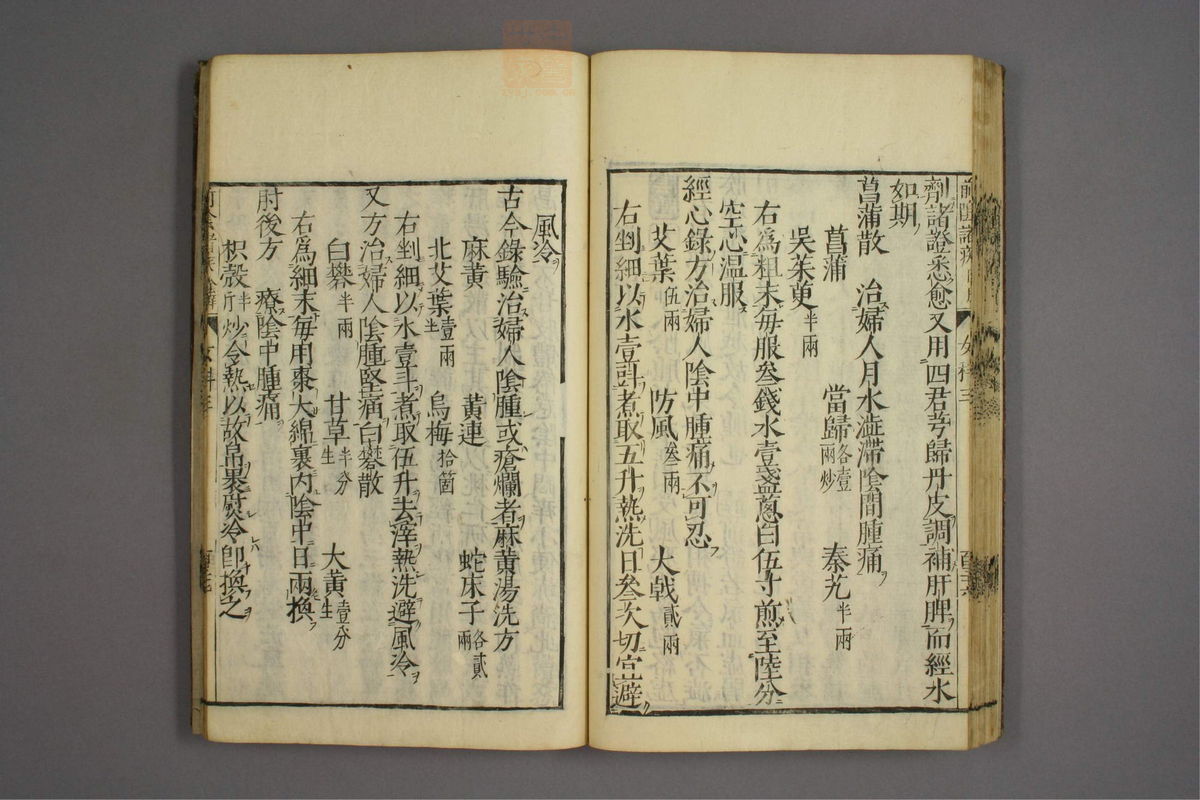 劑諸證悉愈又用四君芎歸丹皮調補肝脾而經水
如期
菖蒲散　治婦人月水澁滯陰間腫痛
菖蒲　當歸各壹兩炒　秦艽半兩
吳茱萸半兩
右爲粗末每服叄錢水壹盞蔥白伍寸煎至陸分
空心温服
經心錄方治婦人陰中腫痛不可忍
艾葉伍兩　防風叄兩　大戟貳兩
右剉細以水壹㪷煮取五升熱洗日叄次切宜避
風冷
古今錄驗治婦人陰腫或瘡爛者麻黃湯洗方
麻黃　黃連　蛇床子各貳兩
北艾葉壹兩　烏梅拾箇
右剉細以水壹斗煮取伍升去滓熱洗避風冷
又方治婦人陰腫堅痛白礬散
白礬半兩　甘草生半分　大黃生壹分
右爲細末每用棗大綿裹內陰中日兩換
肘後方　療陰中腫痛
枳殼半斤炒令熱以故帛裹熨冷卽換之
女科三